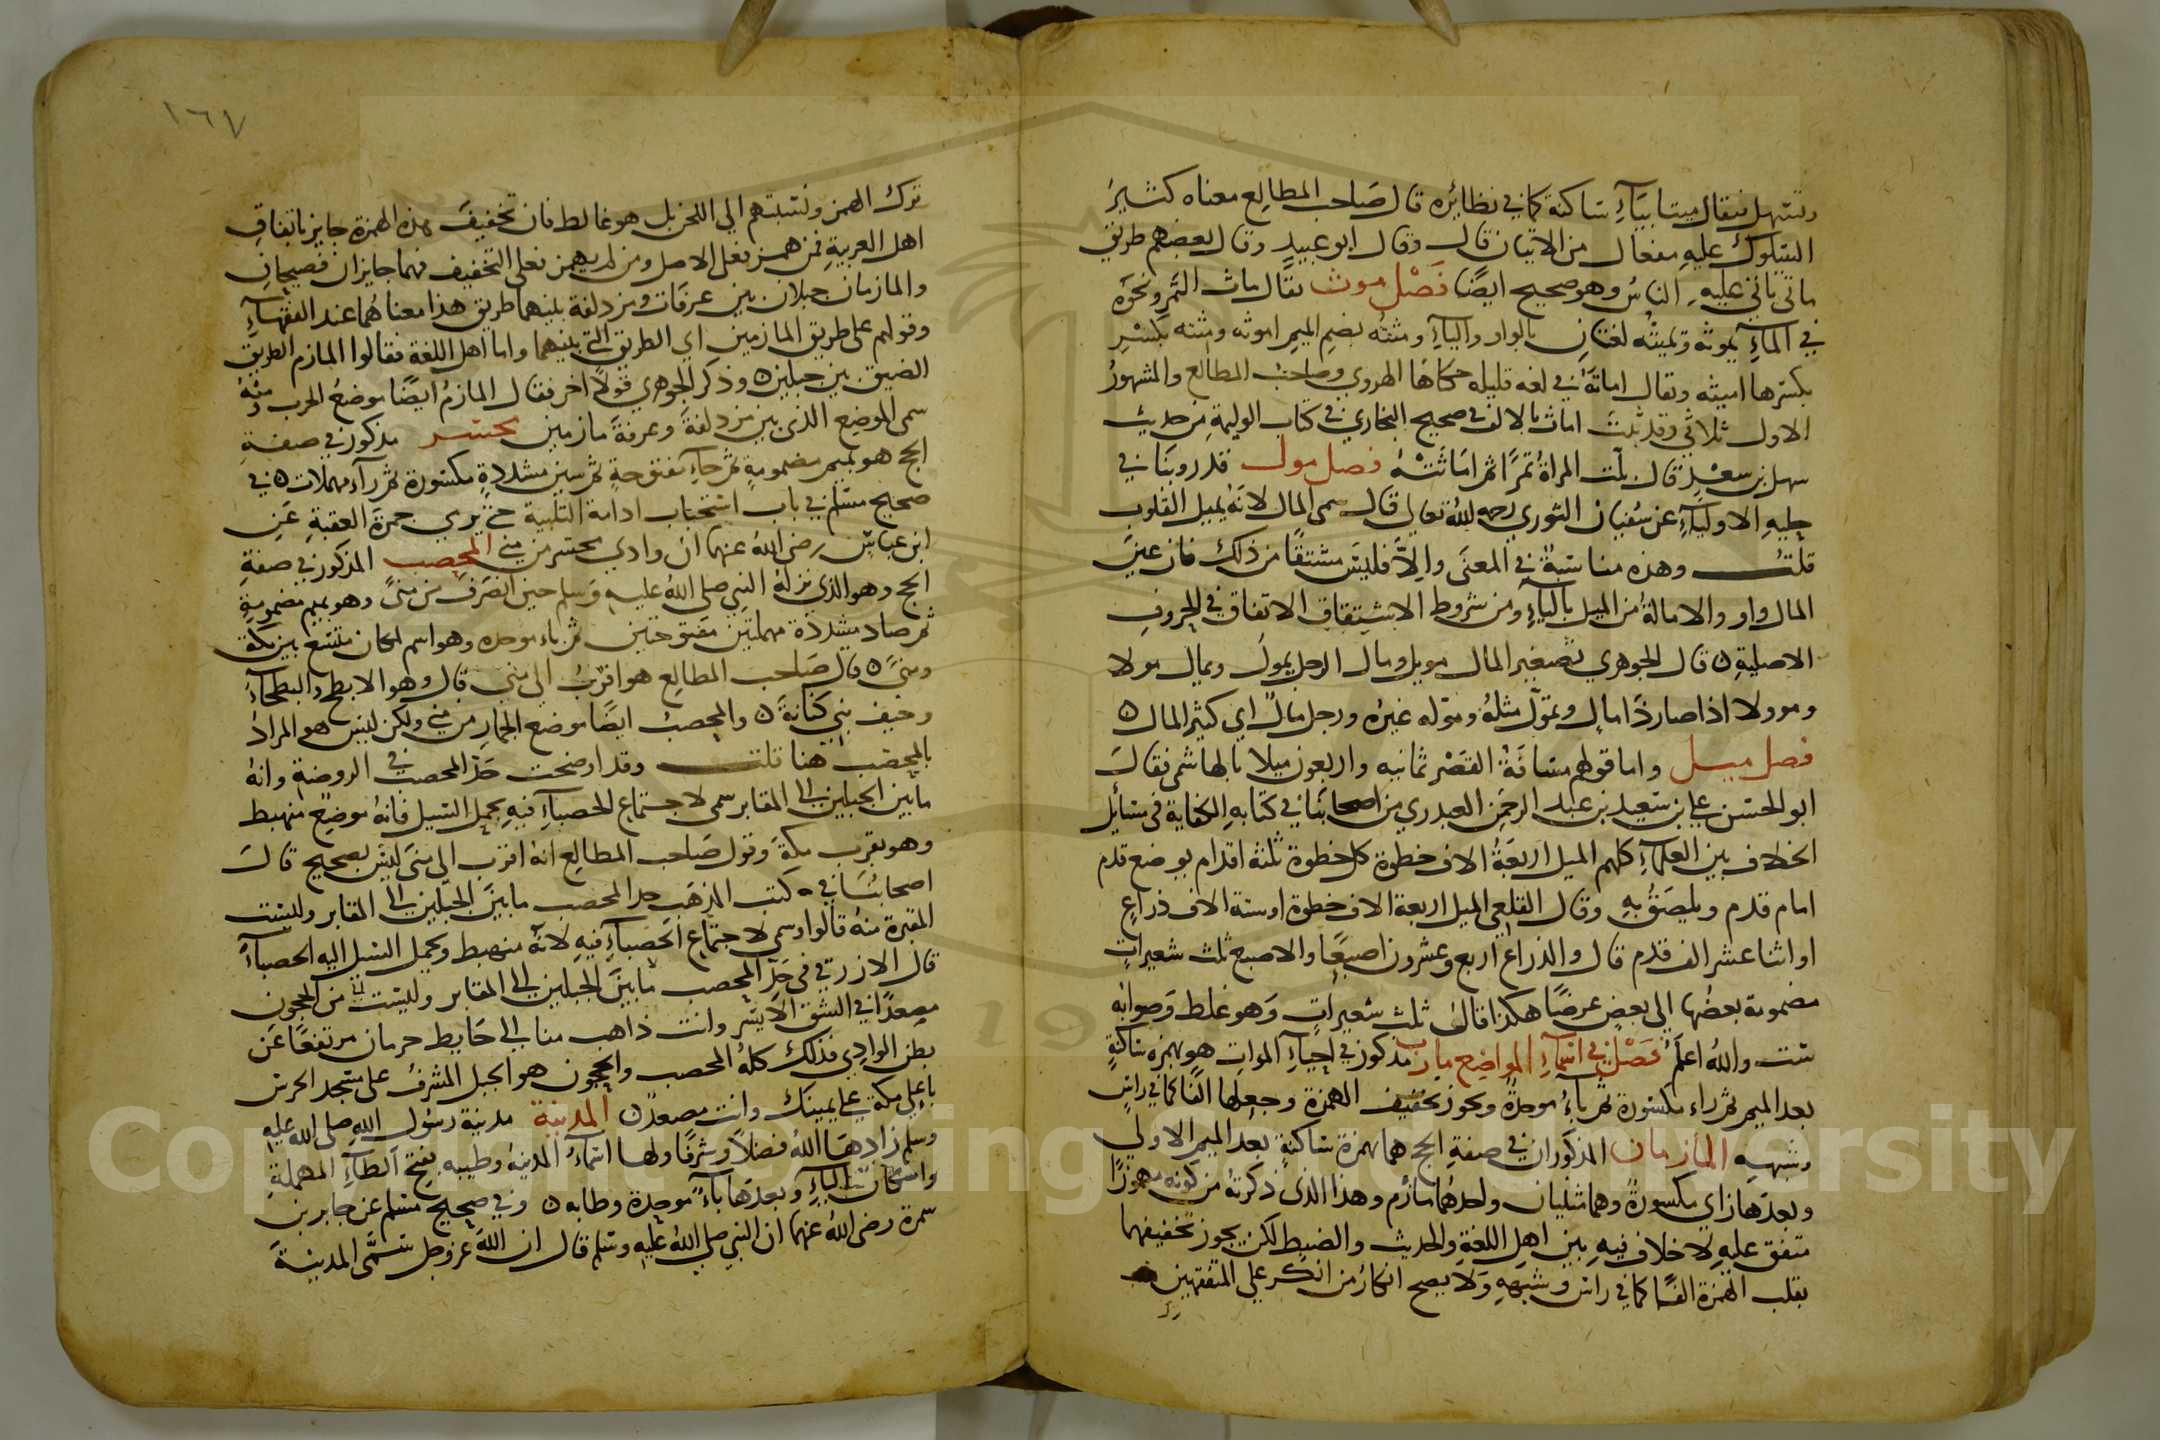 وتسهل فيقال ميتا بياء ساكنة كما في نظائره قال صاحب المطالع معناه كثير
السلوك عليه مفعال من الاتيان قال وقال ابو عبيد وقال بعضهم طريق
مأتي ياتي عليه الناس وهو صحيح ايضا فصل موث يقال ماث التمر ونحوه
في الماء يموثه ويميثه لغتان بالواو والياء ومثته بضم الميم اموثه ومثته بكسر
بكسرها اميثه ويقال اماثه في لغه قليله حكاها الهروي وصاحب المطالع والمشهور
الاول ثلاثي وقد ثبت اماث بالالف في صحيح البخاري في كتاب الوليمة من حديث
سهل بن سعد قال بلت المراة تمرا ثم اماثته فصل مول قد روينا في
حلية الاولياء عن سفيان الثوري رحمه الله تعالى قال سمي المال لانه يميل القلوب
قلت وهذه مناسبة في المعنى والا فليس مشتقا من ذلك فان عين
المال واو والامالة من الميل بالياء ومن شروط الاشتقاق الاتفاق في الحروف
الاصلية ه قال الجوهري تصغير المال مويل ومال الرجل يمول ويمال مولا
ومؤولا اذا صار ذا مال وتمول مثله وموله غيره ورجل مال اي كثير المال ه
فصل ميل واما قولهم مسافة القصر ثمانيه واربعون ميلا بالهاشمي فقال
ابو الحسن علي بن سعيد بن عبد الرحمن العبدري من اصحابنا في كتابه الكفاية في مسائل
الخلاف بين العلماء كلهم الميل اربعة الاف خطوة كل خطوة ثلثة اقدام بوضع قدم
امام قدم ويلصق به وقال القلعي الميل اربعة الاف خطوة او ستة الاف ذراع
او اثنا عشر الف قدم قال والذراع اربع وعشرون اصبعا والاصبع ثلث شعيرات
مضمومة بعضها الي بعض عرضا هكذا قال ثلث شعيرات وهو غلط وصوابه
ست والله اعلم فصل في اسماء المواضع مارب مذكور في احياء الموات هو بهمزه ساكنة
بعد الميم ثم راء مكسورة ثم باء موحدة ويجوز تخفيف الهمزة وجعلها الفا كما في راس
وشبهه المازمان المذكوران في صفة الحج هما بهمزة ساكنة بعد الميم الاولي
وبعدها زاي مكسورة وهما مثنيان واحدهما مازم وهذا الذي ذكرته من كونه مهموزا
متفق عليه لا خلاف فيه بين اهل اللغة والحديث والضبط لكن يجوز تخفيفهما
بقلب الهمزة الفا كما في راس وشبهه ولا يصح انكار من انكر علي المتفقهين
١٦٧
ترك الهمز ونسبتهم الي اللحن بل هو غالط فان تخفيف هذه الهمزة جايز باتفاق
اهل العربية فمن همز فعلى الاصل ومن لم يهمز فعلى التخفيف فهما جايزان فصيحان
والمازمان جبلان بين عرفات ومزدلفة بينهما طريق هذا معناهما عند الفقهاء
وقولهم على طريق المازمين اي الطريق التي بينهما واما اهل اللغة فقالوا المازم الطريق
الضيق بين جبلين ه وذكر الجوهري قولا اخر فقال المازم ايضا موضع الحرب ومنه
سمي الموضع الذي بين مزدلفة وعرفة مازمين محسر مذكور في صفة
الحج هو بميم مضمومة ثم حاء مفتوحة ثم سين مشددة مكسورة ثم راء مهملات ه في
صحيح مسلم في باب استحباب ادامة التلبية حتى يرمي جمرة العقبة عن
ابن عباس رضي الله عنهما ان وادي محسر من منى المحصب المذكور في صفة
الحج وهو الذي نزله النبي صلي الله عليه وسلم حين انصرف من منى وهو بميم مضمومة
ثم صاد مشددة مهملتين مفتوحتين ثم باء موحده وهو اسم لمكان متسع بين مكة
ومنى ه قال صاحب المطالع هو اقرب الى منى قال وهو الابطح والبطحاء
وخيف بني كنانة ه والمحصب ايضا موضع الجمار من منى ولكن ليس هو المراد
بالمحصب هنا قلت وقد اوضحت حد المحصب في الروضة وانه
ما بين الجبلين الى المقابر سمي لاجتماع الحصباء فيه بحمل السيل فانه موضع منهبط
وهو بقرب مكة وقول صاحب المطالع انه اقرب الى منى ليس بصحيح قال
اصحابنا في كتب المذهب حد المحصب ما بين الجبلين الى المقابر وليست
المقبرة منه قالوا وسمي لاجتماع الحصباء فيه لانه منهبط ويحمل السيل اليه الحصباء
قال الازرقي في حد المحصب ما بين الجبلين الى المقابر وليست من الحجون
مصعدا في الشق الايسر وانت ذاهب منا الى حايط حرمان مرتفعا عن
بطن الوادي فذلك كله المحصب والحجون هو الجبل المشرف على مسجد الحرس
باعلى مكة على يمينك وانت مصعد ه المدينة مدينة رسول الله صلى الله عليه
وسلم زادها الله فضلا وشرفا ولها اسماء المدينة وطيبه بفتح الطاء المهملة
واسكان الياء وبعدها باء موحدة وطابه ه وفي صحيح مسلم عن جابر بن
سمرة رضي الله عنهما ان النبي صلى الله عليه وسلم قال ان الله عز وجل سمى المدينة
Copyright © King Saud University